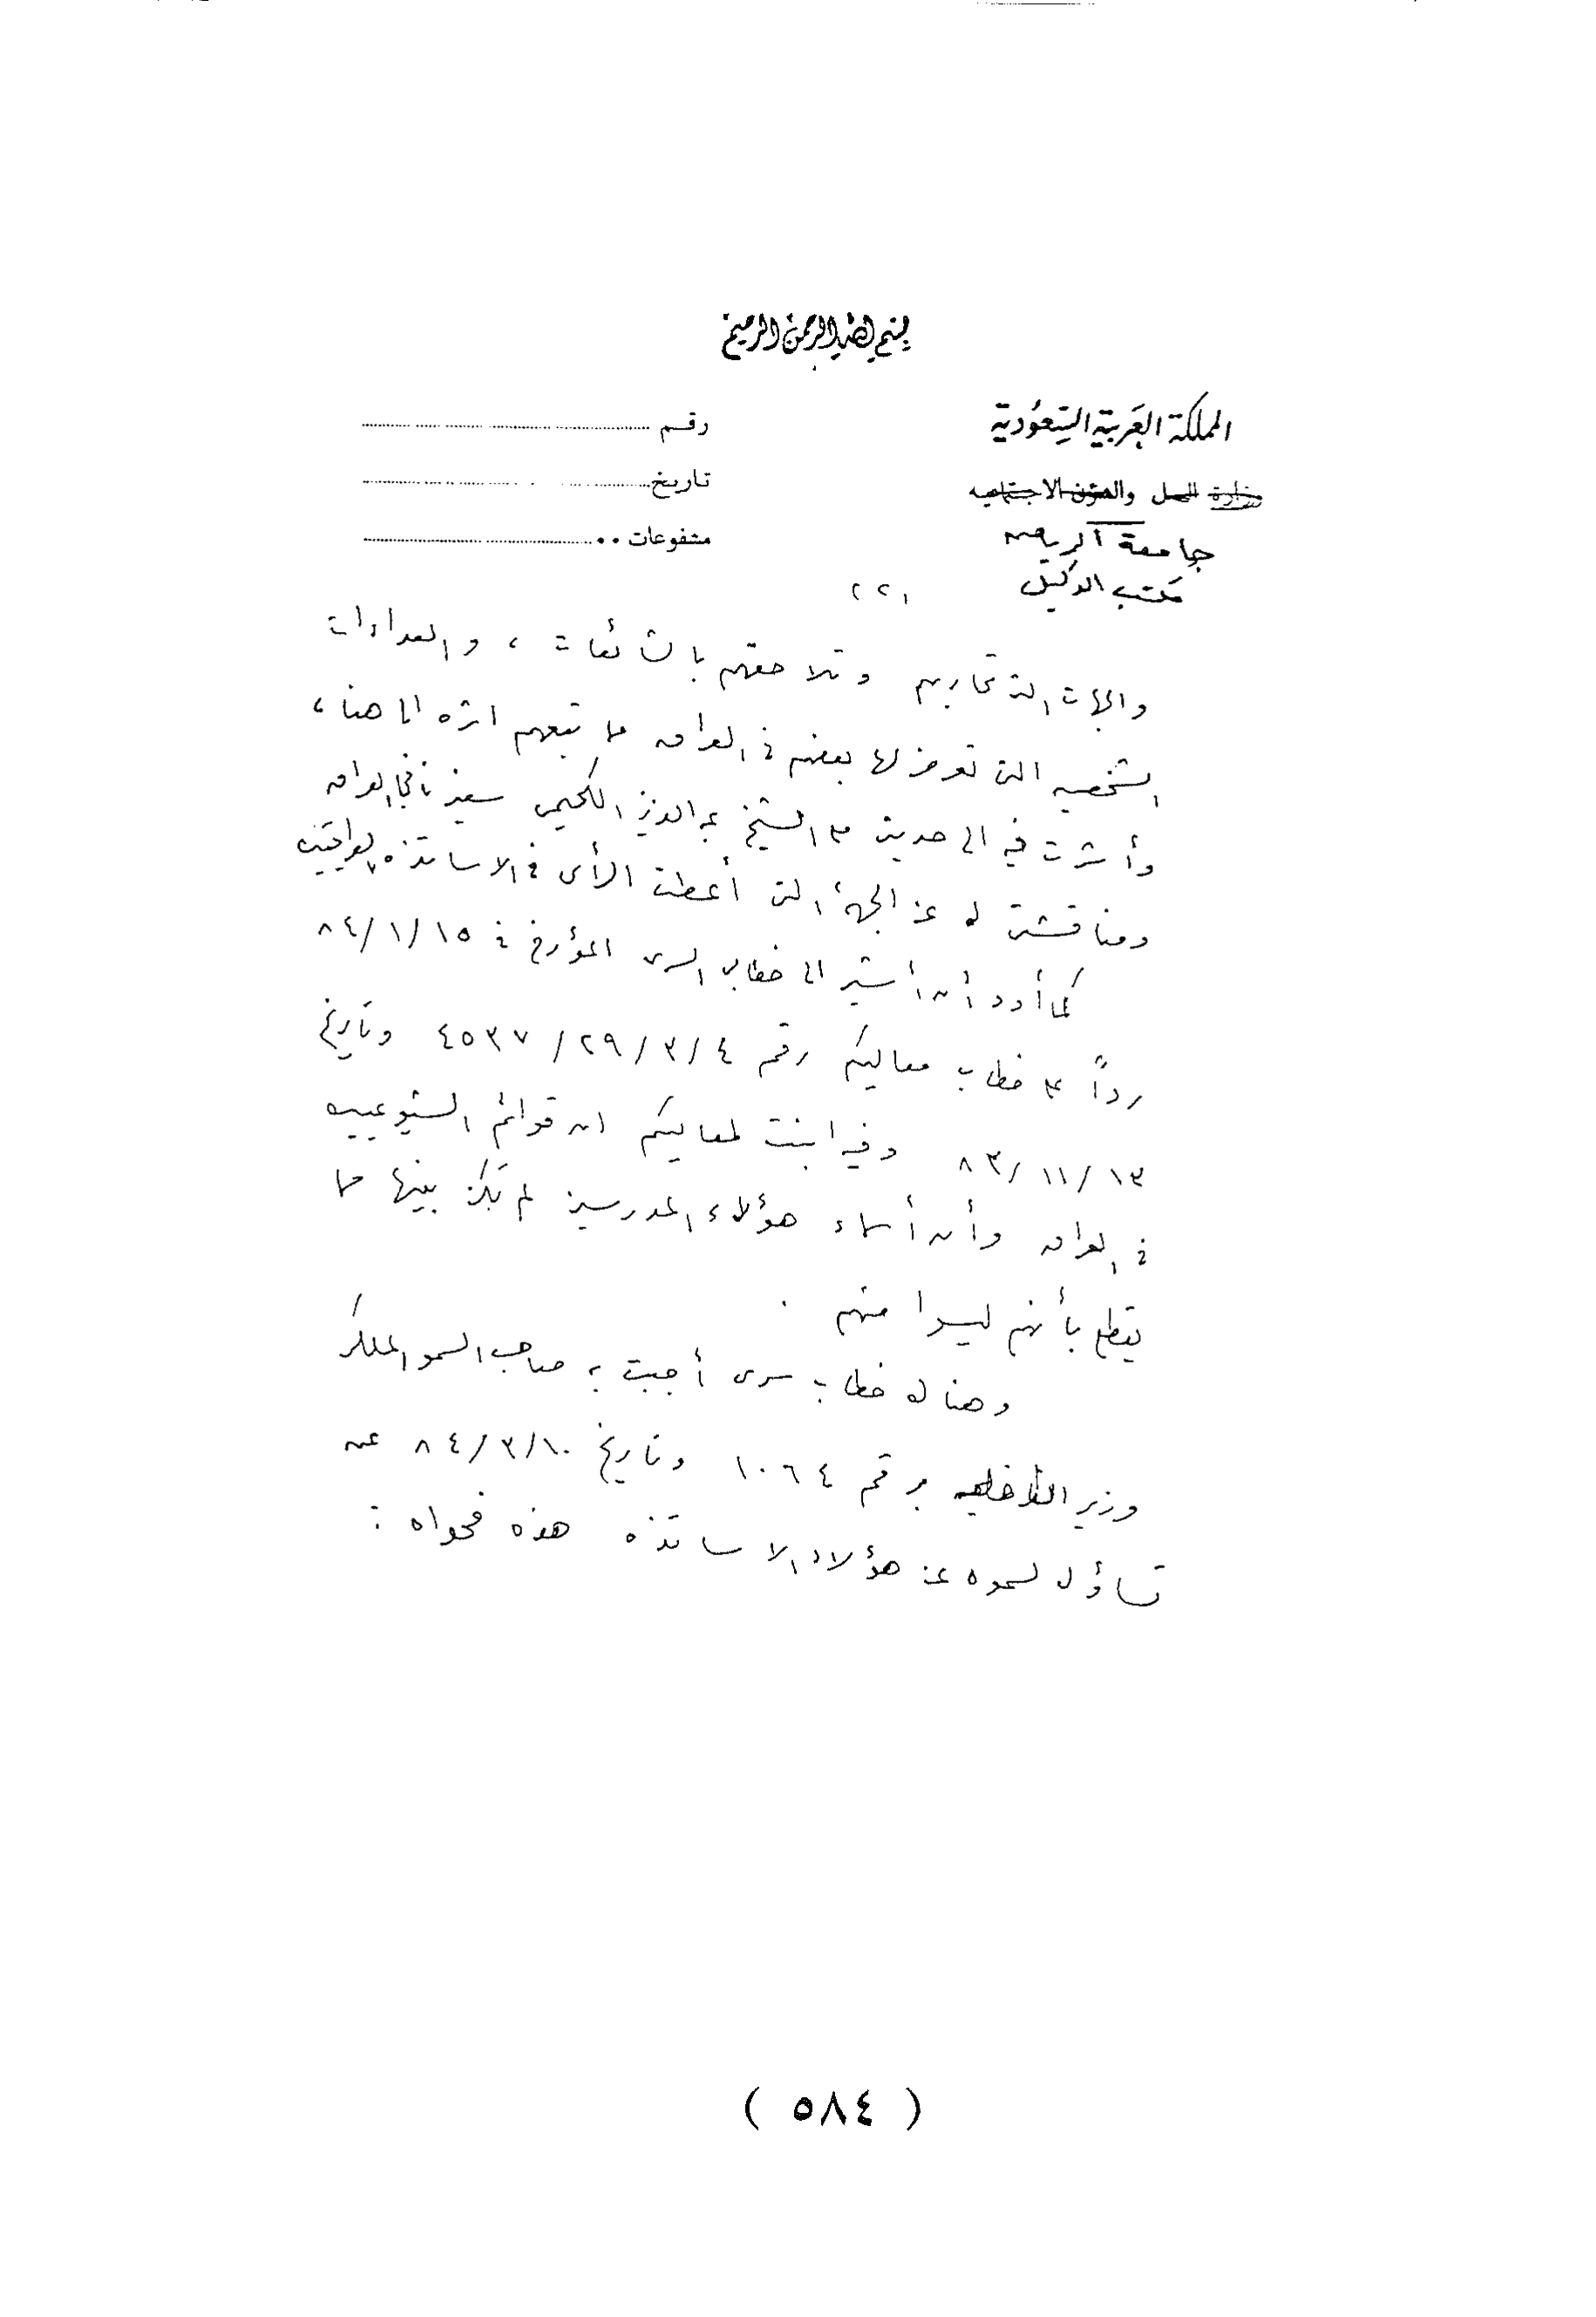 بسم الله الرحمن الرحيم
المملكة العربية السعودية
رقم
وزارة العمل والشئون الاجتماعيه
تاريخ
جامعة الرياض
مشفوعات
مكتب الوكيل
(٢)
والجهات التى تحاربهم وتلاحقهم بالشائعات ، والعداءات
الشخصيه التى تعرض لها بعضهم فى العراق مما تبعهم اثره الى هنا ،
وأشرت فيه الى حديث مع الشيخ عبد العزيز الكحيمى سفيرنا فى العراق
ومناقشتى له عن الجهة التى أعطت الرأى فى الاساتذه العراقيين
كما أود أن أشير الى خطابى السرى المؤرخ فى ٨٤/١/١٥
رداً على خطاب معاليكم رقم ٤/٣/٢٩/٤٥٣٧ وتاريخ
٨٣/١١/١٣ وفيه ابنت لمعاليكم ان قوائم الشيوعيين
فى العراق وأن أسماء هؤلاء المدرسين لم تكن بينها مما
يقطع بأنهم ليسوا منهم .
وهناك خطاب سرى أجبت به صاحب السمو الملكى
وزير الداخليه برقم ١٠٦٤ وتاريخ ٨٤/٣/١٠ عن
تساؤل لسموه عن هؤلاء الاساتذه هذه فحواه :
( ٥٨٤ )